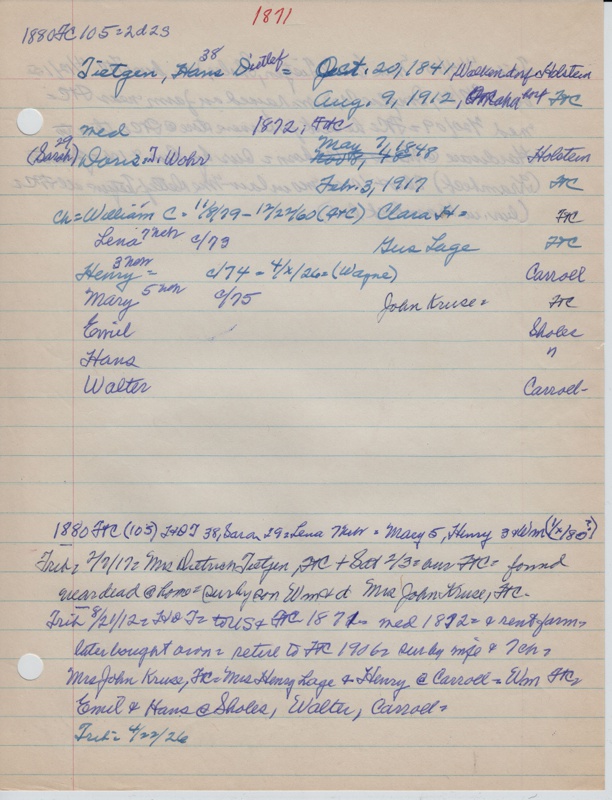 1871
1880 FC 105 = 2d 23
38
Tietgen, Hans Detlef = Oct. 20, 1841, Wackendorf Holstein
Aug. 9, 1912, Omaha FtC
med 1872, FtC
39 May 7, 1848
(Sarah) Doris = T. Wohr Nov 8, 48 Holstein
Feb. 3, 1917 FtC
Ch = William C = 11/9/79 - 12/22/60 (FtC) Clara H = FtC
Lena c/73 Gus Lage FtC
Henry = c/74 = 4/x/26 = (Wayne) Carroll
Mary 5 c/75 John Kruse = FtC
Emil Sholes
Hans "
Walter Carroll -
1880 FtC (105) HDT 38, Sara 39 = Lena 7 = Mary 5, Henry 3 & Wm (1/x/80?)
Trib = 2/7/17 = Mrs Dietrich Tietgen, FtC + Sat 2/3 = our FtC = found
dead @ home = sur by son Wm & d Mrs John Kruse, FtC -
Trib 8/21/12 = HDT = to US & FtC 1871 = med 1872 = & rent farm =
later bought own = retire to FtC 1906 = sur by wife & 7 ch =
Mrs John Kruse, FtC = Mrs Henry Lage & Henry @ Carroll = Wm FtC =
Emil & Hans @ Sholes, Walter, Carroll =
Trib = 4/22/26